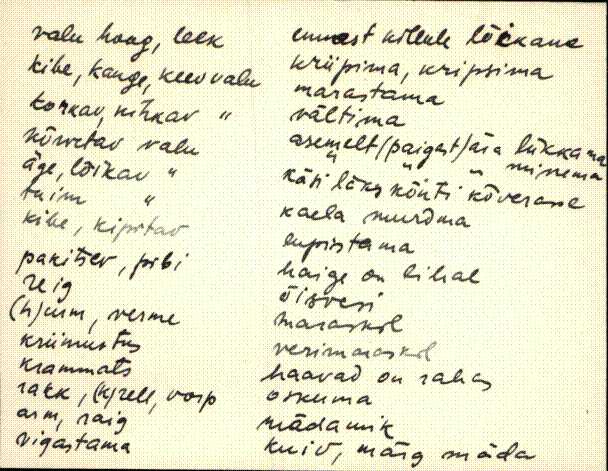 valu hoog, leek
kibe, kange, keev valu
torkav, nihkav "
kõrvetav valu
äge, lõikav "
tuim "
kibe, kipitav
pakitsev, pibi
reig
(h)urm, verme
kriimustus
krammats
rakk, (k)rell, vorp
arm, raig
vigastama
ennast külleli lõikama
kriipima, kripsima
marastama
vältima
asemelt (paigast) ära lükkama
" " " minema
käsi läks kõnti kõverasse
kaela murdma
lupistama
haige on lihal
õisvesi
maraskil
verimaraskil
haavad on rahas
oskuma
mädanik
kuiv, märg mäda